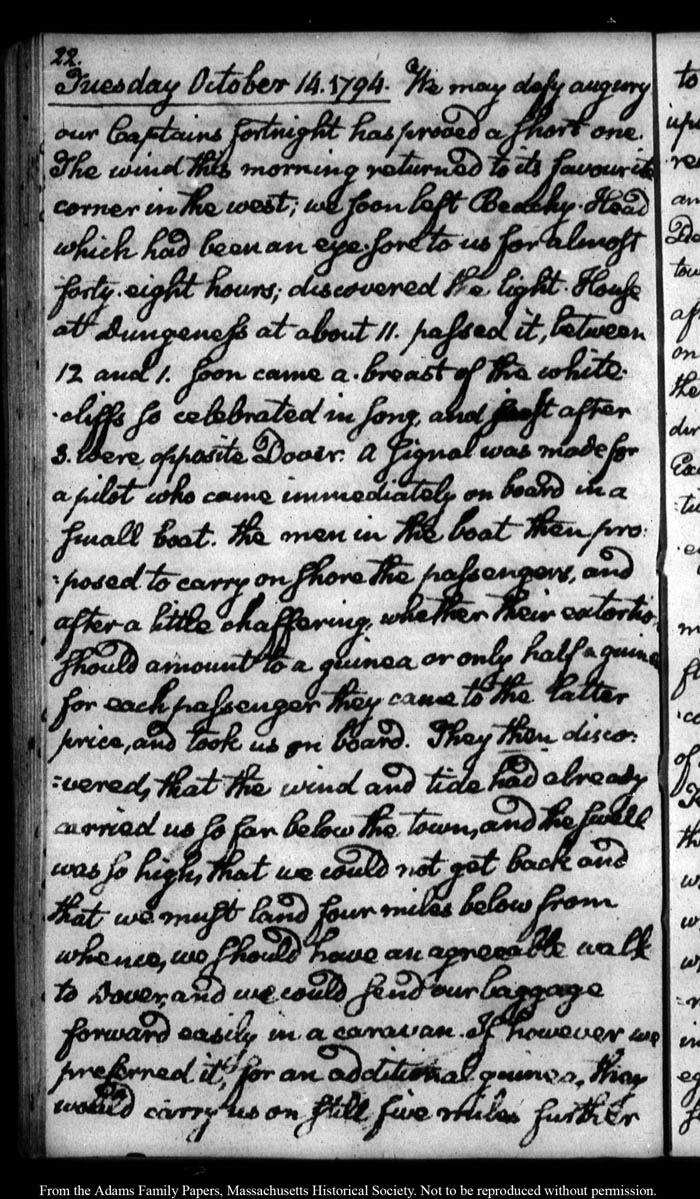 22.
Tuesday October 14. 1794. We may defy augury
our Captains fortnight has proved a short one.
The wind this morning returned to its favourite
corner in the west; we soon left Beachy-Head
which had been an eye-sore to us for almost
forty-eight hours; discovered the light-House
at Dungeness at about 11. passed it, between
12 and 1. soon came a-breast of the white-
-cliffs so celebrated in song, and just after
3. were opposite Dover. A signal was made for
a pilot who came immediately on board in a
small boat. The men in the boat then pro:
:posed to carry on shore the passengers, and
after a little chaffering, whether their extortio
should amount to a guinea or only half a guine
for each passenger they came to the latter
price, and took us on board. They then disco:
:vered, that the wind and tide had already
carried us so far below the town, and the swell
was so high, that we could not get back and
that we must land four miles below from
whence, we should have an agreeable walk
to Dover, and we could send our baggage
forward easily in a caravan. If however we
preferred it, for an additional guinea, they
would carry us on still five miles further
to
up
re
an
De
tow
af
on
the
dir
m
of
th
w
w
w
in
From the Adams Family Papers, Massachusetts Historical Society. Not to be reproduced without permission.